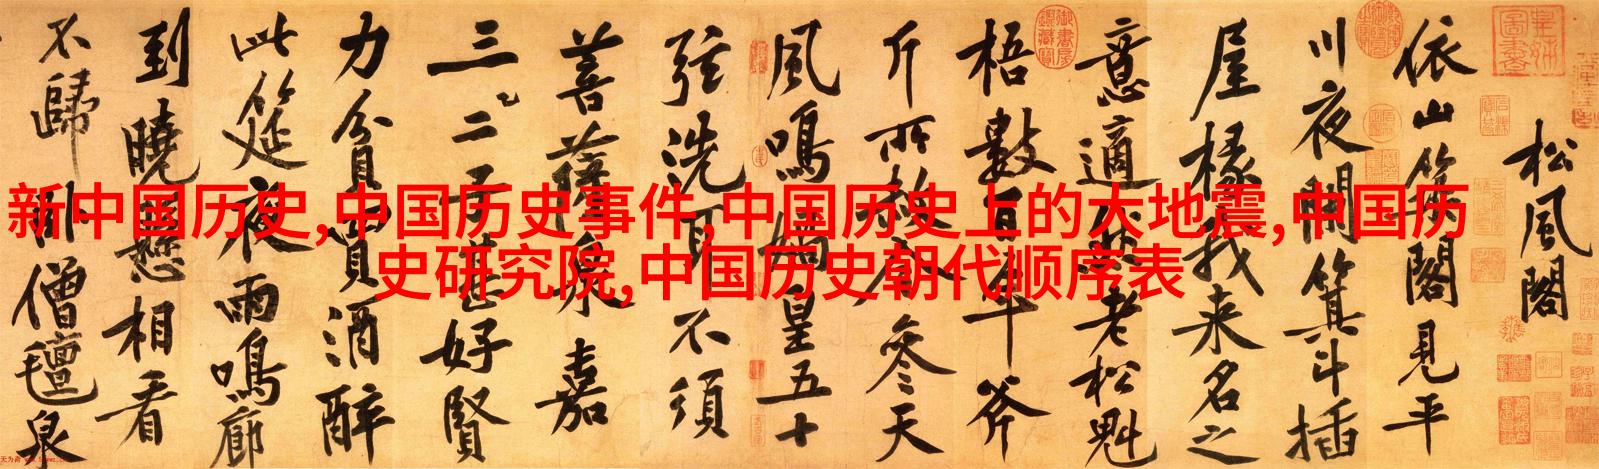 新中国历史,中国历史事件,中国历史上的大地震,中国历
史研究院,中国历史朝代顺序表
松風閣
依山築閣見平
川夜闌箕斗插
屋椽我来名之
意適然老松魁
梧數百年斧
斤所赦令參天
風鳴媧皇五十
弦洗耳不須
菩薩泉嘉
三二子甚好賢
力貧買酒醉
此筵夜雨鳴廊
到曉懸相看
不歸臥僧氈泉